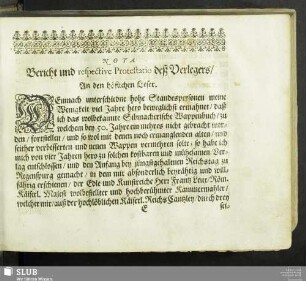 NOTA
Bericht und respectivè Protestatio deß Verlegers/
An den höflichen Leser.
DEmnach unterschiedne hohe Standespersonen meine
Wenigkeit viel Jahre hero beweglichst ermahnet/ daß
ich das wolbekannte Sibmacherische Wappenbuch/ zu
welchem bey 50. Jahre ein mehrers nicht gebracht wor-
den/ fortstellen/ und so wol mit denen noch ermanglenden alten/ und
seither verbesserten und neuen Wappen vermehren solte: so habe ich
mich von vier Jahren hero zu solchen kostbaren und mühesamen Ver-
lag entschlossen/ und den Anfang bey jüngstgehaltenen Reichstag zu
Regenspurg gemacht/ in deme mir authenticè beyräthig und will-
fährig erschienen/ der Edle und Kunstreiche Herr Frantz Leux/ Röm.
Käiserl. Majest. wolbestellter und hochberühmter Kammermahler/
welcher mir/ auß der hochlöblichen Käiserl. Reichs Cantzley/ durch drey
E
SLUB
Wir führen Wissen.